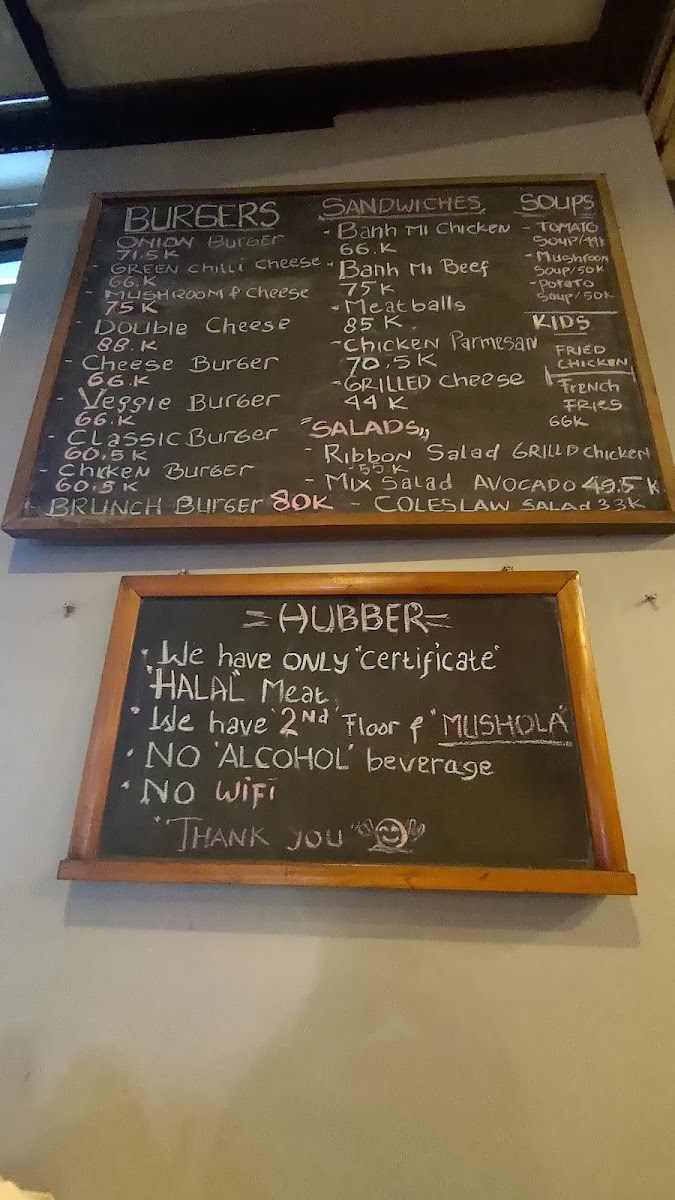 BURGERS
- ONION Burger
71.5K
- GREEN chilli cheese
66.K
- MUSHROOM & Cheese
75K
- Double Cheese
88.K
- Cheese Burger
66.K
- Veggie Burger
66.K
- Classic Burger
60.5K
- Chicken Burger
60.5K
- BRUNCH Burger 80K
SANDWICHES
- Banh Mi Chicken
66.K
- Banh Mi Beef
75K
- Meatballs
85K
- Chicken Parmesan
70.5K
- GRILLED cheese
44K
"SALADS"
- Ribbon Salad GRILLD chicken
55K
- Mix Salad AVOCADO 49.5K
- COLESLAW SALAd 33K
Soups
- TOMATO
Soup/44K
- Mushroom
Soup/50K
- Potato
Soup/50K
KIDS
FRIED
CHICKEN
French
FRIES
66K
=HUBBER=
• We have ONLY "certificate"
"HALAL" Meat
• We have '2nd' Floor & "MUSHOLA"
• NO 'ALCOHOL' beverage
• NO WiFi
"THANK you"